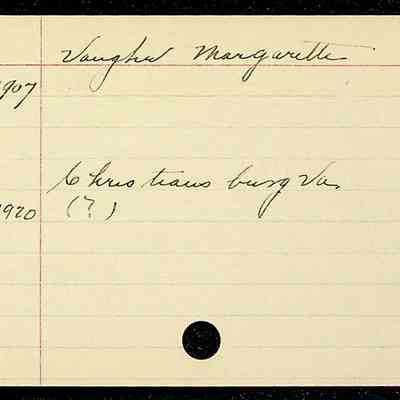 Vaughn Margarette
1907
Christiansburg Va.
1920 (?)